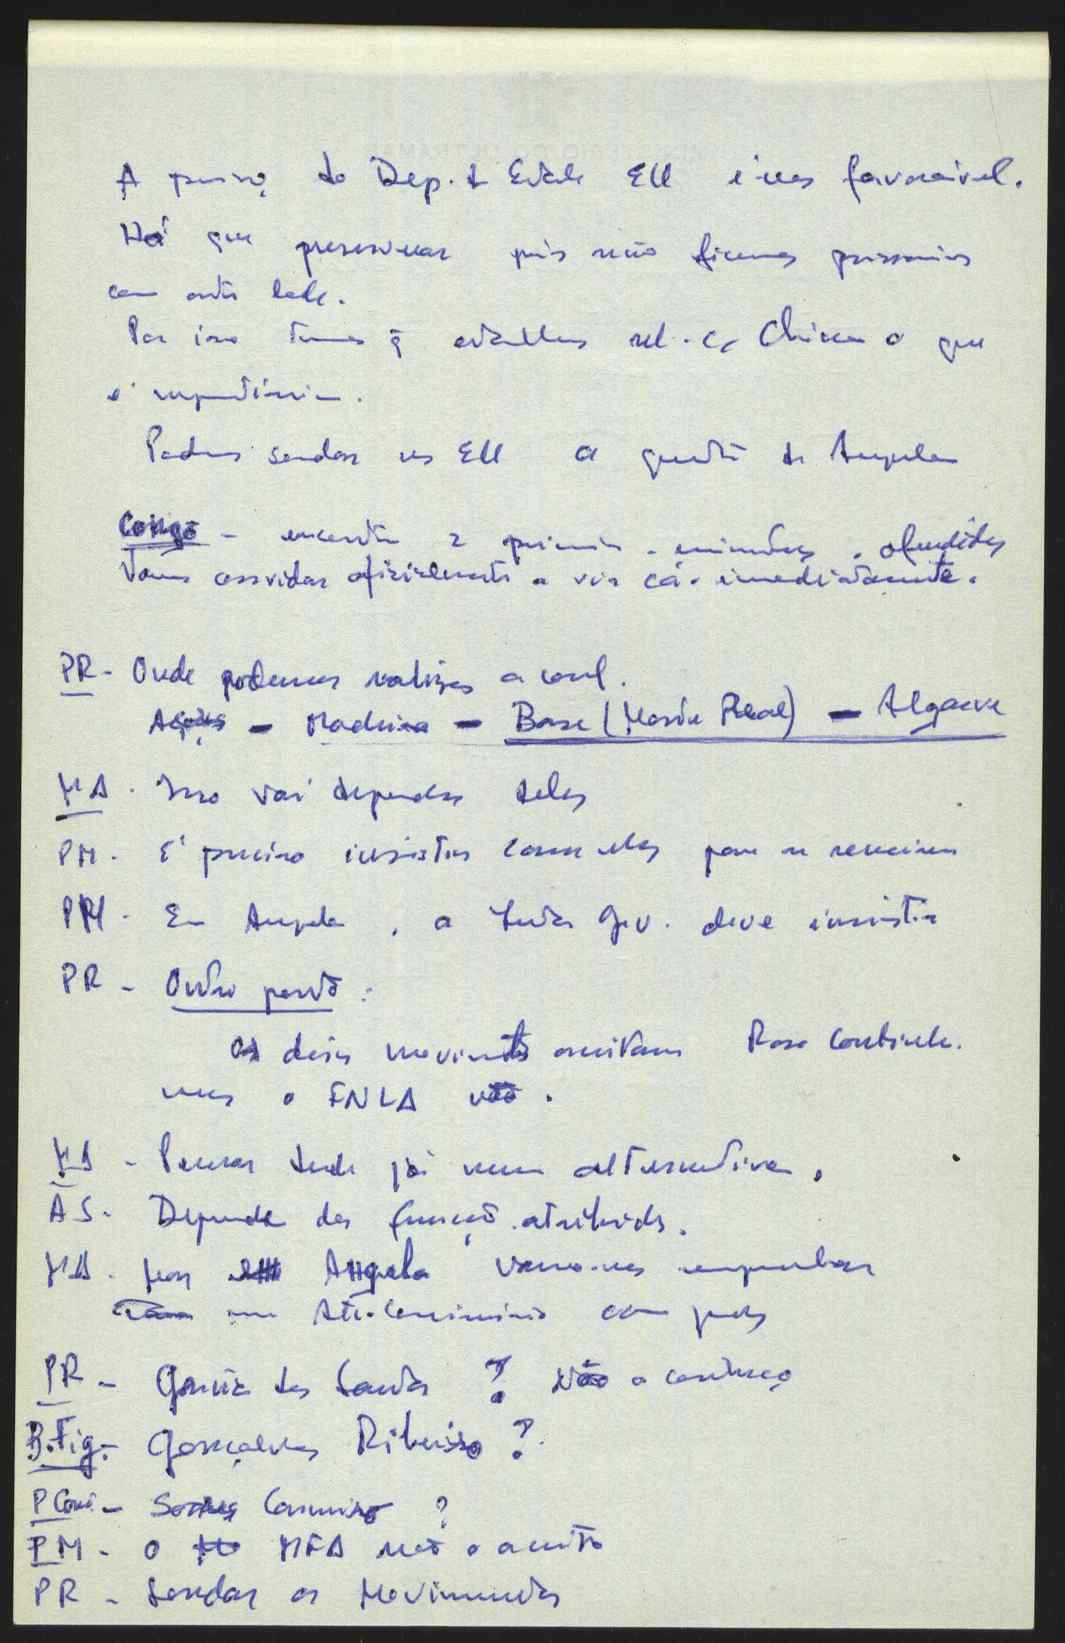 A posição do Dep. d Estado EU é-nos favorável.
Há que perseverar pois não ficamos prisioneiros
com outro lado.
Por isso temos q estabelecer rel. c/ China o que
é
Podemos sondar os EU a questão de Angola
Congo - 2 ofendidos
Vamos convidar oficialmente a vir cá. imediatamente.
PR - Onde podemos realizar a conf.
Açores - Madeira - Base (Monte Real) - Algarve
MA - Isso vai depender deles
PM - É preciso insistir com eles para se reunirem
PM - Em Angola, a Junta Gov. deve insistir
PR - Outro ponto:
Os dois movimentos aceitam Rosa Coutinho.
mas o FNLA não.
MA - Pensar desde já numa alternativa.
AS - Depende das funções atribuídas.
MA - Mas em Angola vamo-nos
um Alto-Comissário com
PR - Garcia dos Santos? Não o conheço
B. Fig. - Gonçalves Ribeiro?
P Cout - Soares Carneiro?
PM - O MFA não o aceita
PR - Sondar os Movimentos